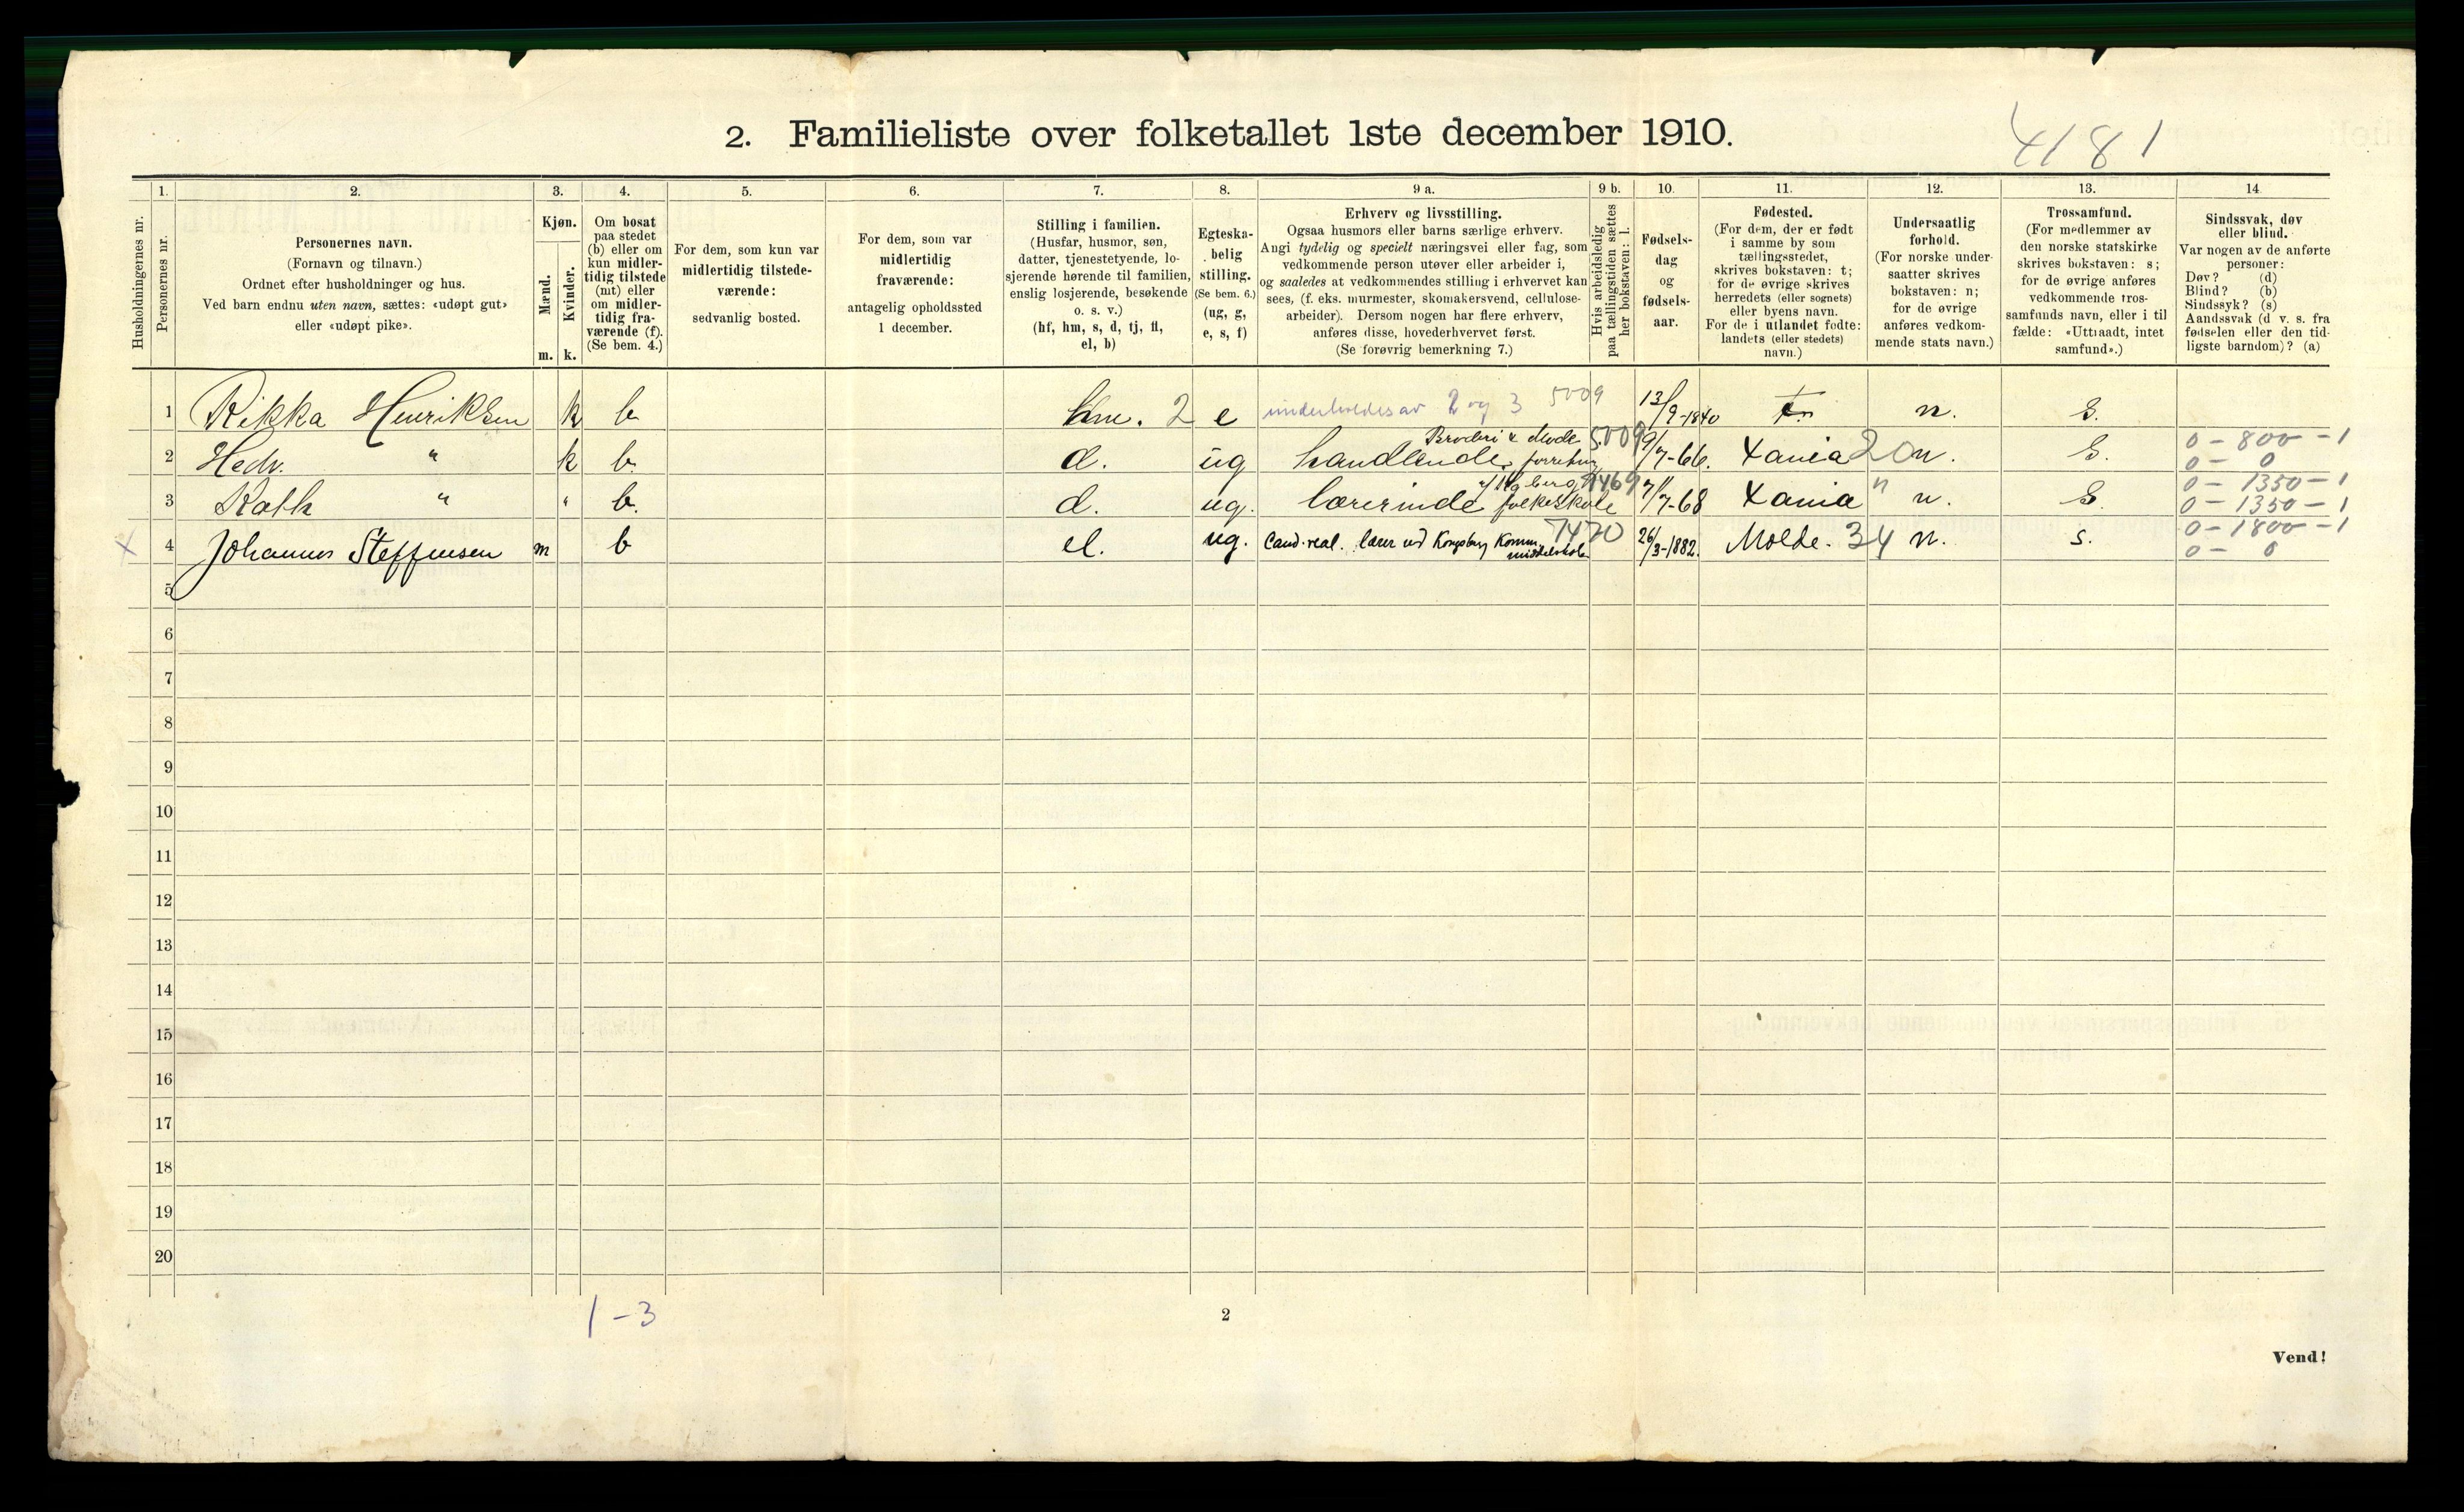 2. Familieliste over folketallet 1ste december 1910.
4181
Husholdningernes nr.
1.
Personernes nr.
2.
Personernes navn.
(Fornavn og tilnavn.)
Ordnet efter husholdninger og hus.
Ved barn endnu uten navn, sættes: «udøpt gut»
eller «udøpt pike».
3.
Kjøn.
Mænd.
Kvinder.
m. k.
4.
Om bosat
paa stedet
(b) eller om
kun midler-
tidig tilstede
(mt) eller
om midler-
tidig fra-
værende (f).
(Se bem. 4.)
5.
For dem, som kun var
midlertidig tilstede-
værende:
sedvanlig bosted.
6.
For dem, som var
midlertidig
fraværende:
antagelig opholdssted
1 december.
7.
Stilling i familien.
(Husfar, husmor, søn,
datter, tjenestetyende, lo-
sjerende hørende til familien,
enslig losjerende, besøkende
o. s. v.)
(hf, hm, s, d, tj, fl,
el, b)
8.
Egteska-
belig
stilling.
(Se bem. 6.)
(ug, g,
e, s, f)
9 a.
Erhverv og livsstilling.
Ogsaa husmors eller barns særlige erhverv.
Angi tydelig og specielt næringsvei eller fag, som
vedkommende person utøver eller arbeider i,
og saaledes at vedkommendes stilling i erhvervet kan
sees, (f. eks. murmester, skomakersvend, cellulose-
arbeider). Dersom nogen har flere erhverv,
anføres disse, hovederhvervet først.
(Se forøvrig bemerkning 7.)
9 b.
Hvis arbeidsledig
paa tællingstiden sættes
her bokstaven: l.
10.
Fødsels-
dag
og
fødsels-
aar.
11.
Fødested.
(For dem, der er født
i samme by som
tællingsstedet,
skrives bokstaven: t;
for de øvrige skrives
herredets (eller sognets)
eller byens navn.
For de i utlandet fødte:
landets (eller stedets)
navn.)
12.
Undersaatlig
forhold.
(For norske under-
saatter skrives
bokstaven: n;
for de øvrige
anføres vedkom-
mende stats navn.)
13.
Trossamfund.
(For medlemmer av
den norske statskirke
skrives bokstaven: s;
for de øvrige anføres
vedkommende tros-
samfunds navn, eller i til
fælde: «Uttraadt, intet
samfund».)
14
Sindssvak, døv
eller blind.
Var nogen av de anførte
personer:
Døv? (d)
Blind? (b)
Sindssyk? (s)
Aandssvak (d v. s. fra
fødselen eller den tid-
ligste barndom)? (a)
1 Rikka Henriksen k b hm. 2 e underholdes av 2 og 3 5009 13/9-1840 n. S.
2 Hedv. " k b. d. ug Handlende, Broderi & Mode 5009 9/7-66. Xania 20 n. S. 0 - 800 - 1
0 - 0
3 Kath " " b. d. ug. lærerinde folkeskole 7469 7/7-68 Xania " n. S. 0 - 1350 - 1
0 - 1350 - 1
X 4 Johannes Steffensen m b el. ug. Cand. real. lærer ved Kongsberg Komm. middelskole 7470 26/3-1882. Molde. 34 n. s. 0 - 1800 - 1
0 - 0
5
6
7
8
9
10
11
12
13
14
15
16
17
18
19
20
1-3
2
Vend!